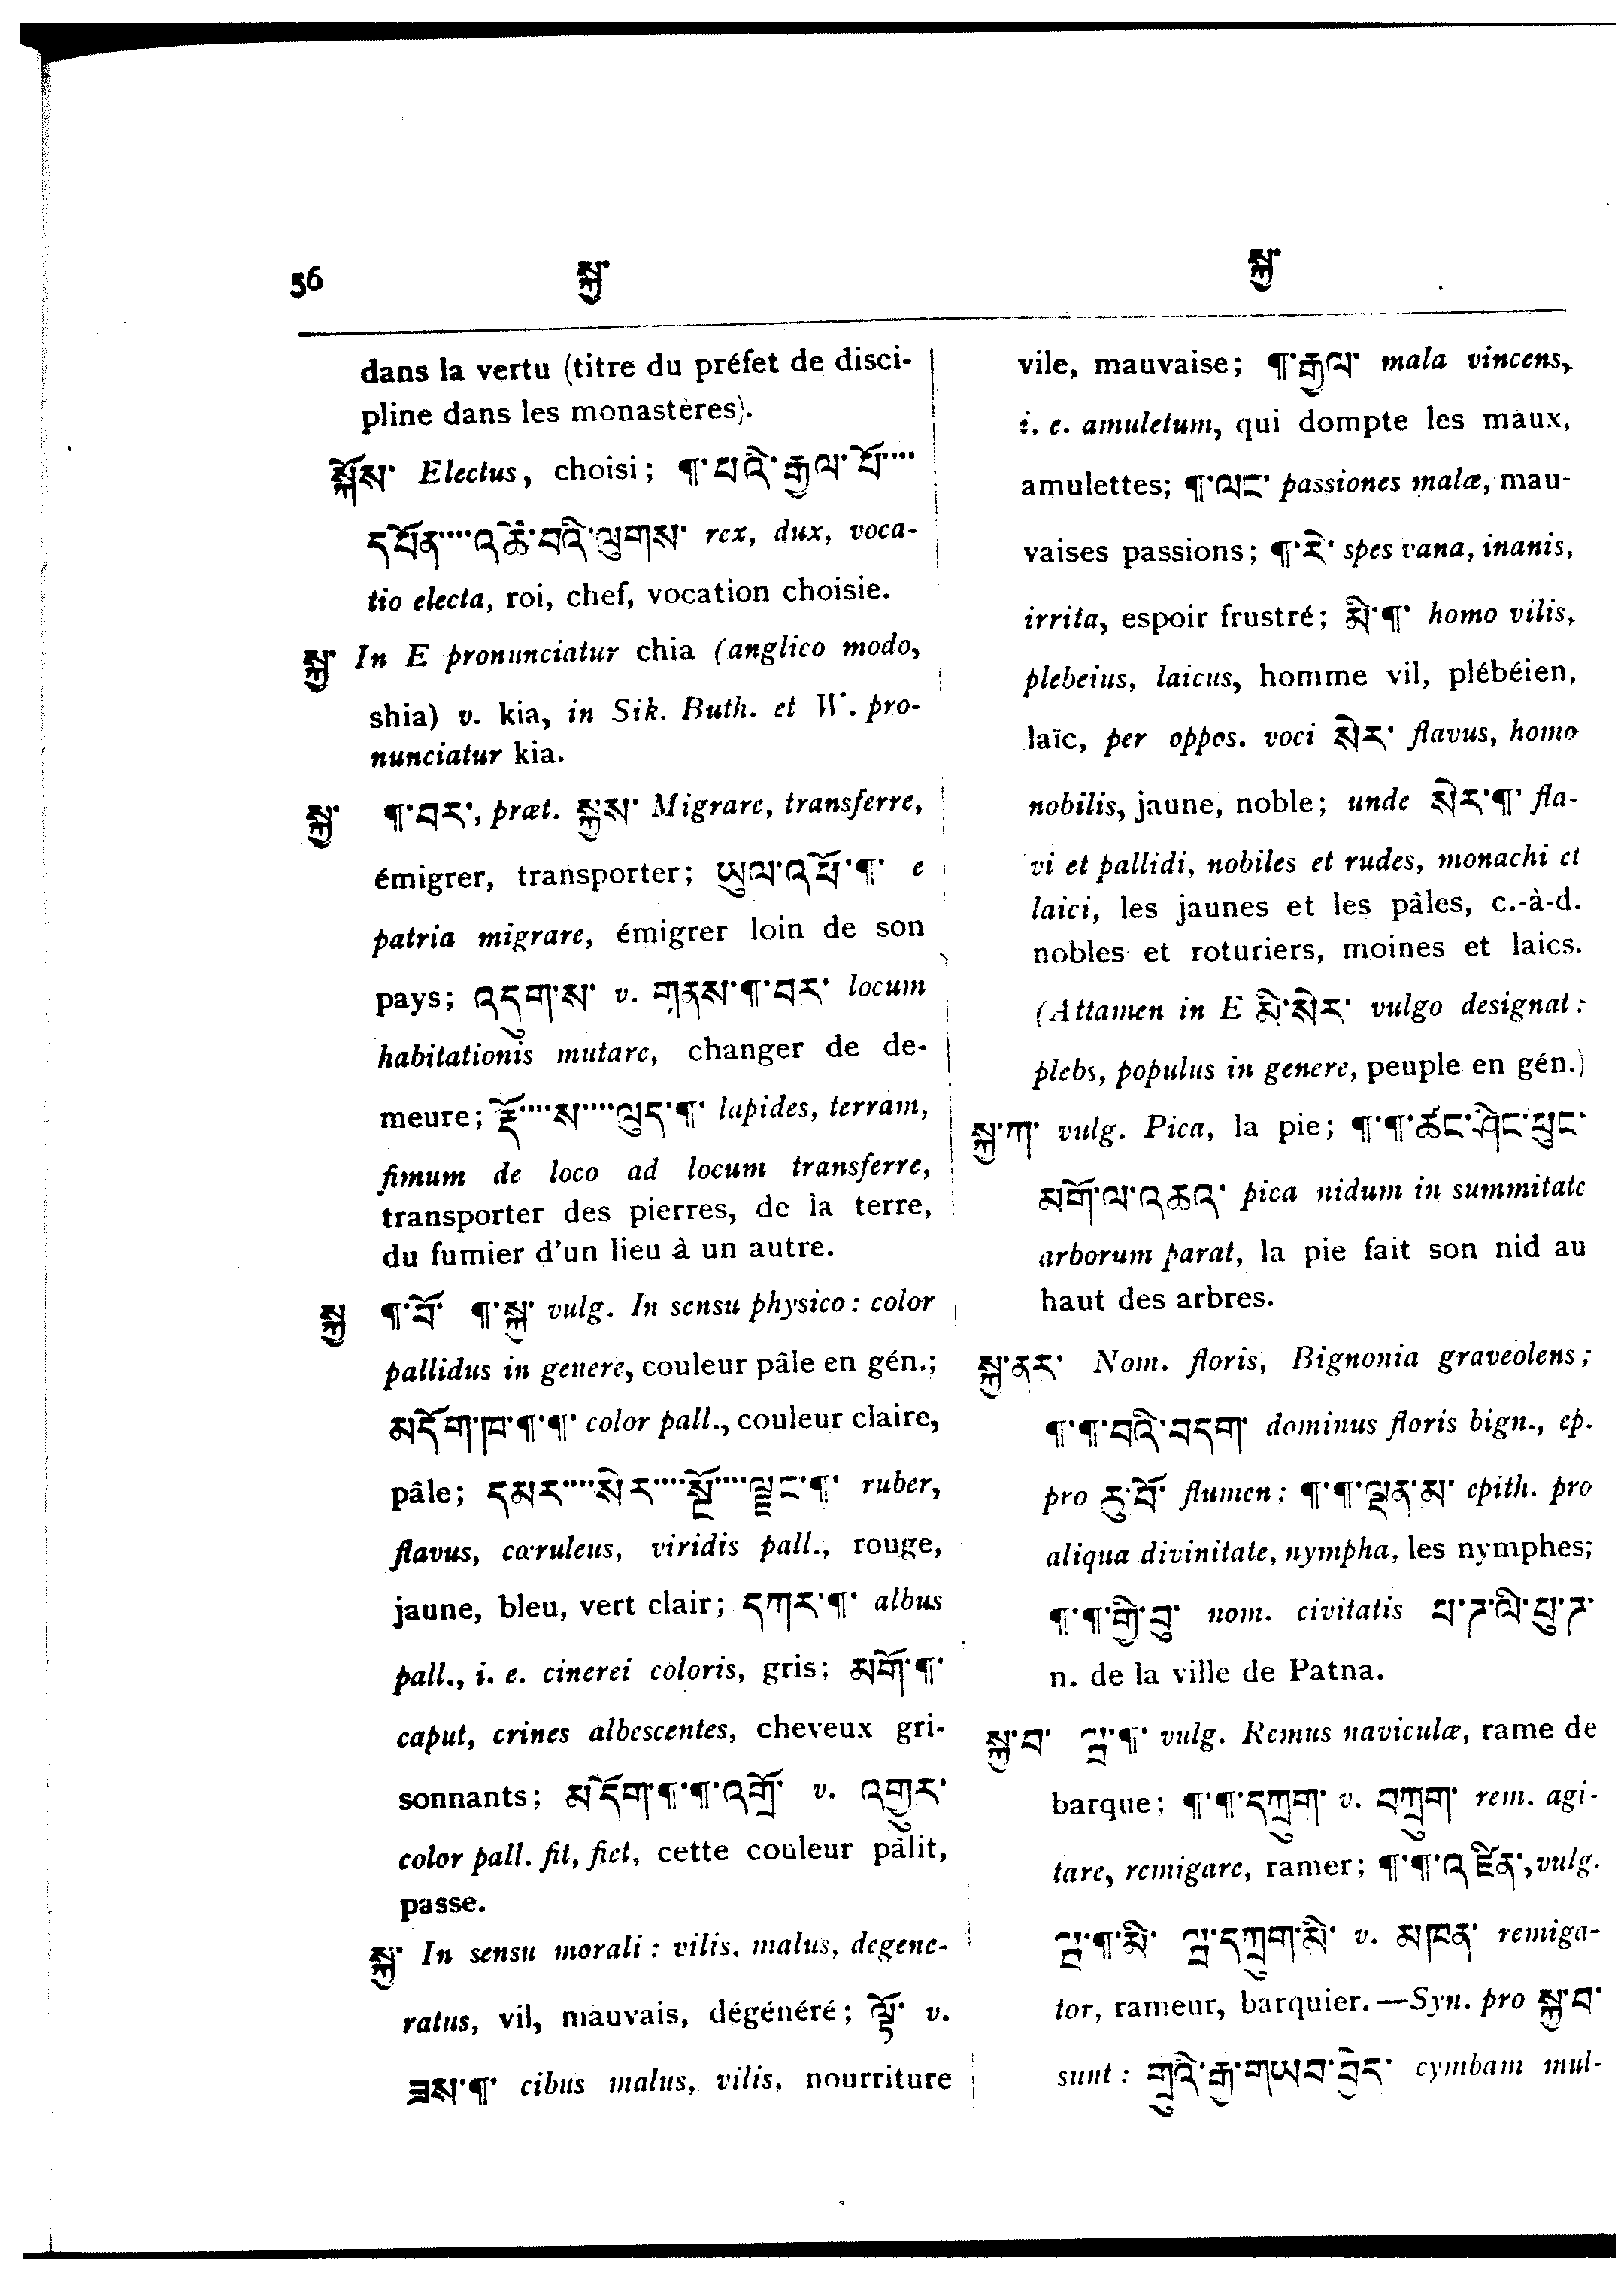 56 སྐྱ་ སྐྱ་
dans la vertu (titre du préfet de disci-
pline dans les monastères).
སྐྱོས་ Electus, choisi; ¶་པའི་རྒྱལ་པོ་····
དཔོན་····འཚོ་བའི་ལུགས་ rex, dux, voca-
tio electa, roi, chef, vocation choisie.
སྐྱ་ In E pronunciatur chia (anglico modo,
shia) v. kia, in Sik. Buth. et W. pro-
nunciatur kia.
སྐྱ་ ¶་བར་, præt. སྐྱས་ Migrare, transferre,
émigrer, transporter; ཡུལ་འཕོ་¶་ e
patria migrare, émigrer loin de son
pays; འདུག་ས་ v. གནས་¶་བར་ locum
habitationis mutare, changer de de-
meure; རྡོ་····ས་····ལུད་¶་ lapides, terram,
fimum de loco ad locum transferre,
transporter des pierres, de la terre,
du fumier d'un lieu à un autre.
སྐྱ ¶་བོ་ ¶་སྐྱ་ vulg. In sensu physico: color
pallidus in genere, couleur pâle en gén.;
མདོག་ཁ་¶་¶་ color pall., couleur claire,
pâle; དམར་····སེར་····སྔོ་····ལྗང་¶་ ruber,
flavus, cæruleus, viridis pall., rouge,
jaune, bleu, vert clair; དཀར་¶་ albus
pall., i. e. cinerei coloris, gris; མགོ་¶་
caput, crines albescentes, cheveux gri-
sonnants; མདོག་¶་¶་འགྲོ་ v. འགྱུར་
color pall. fit, fiet, cette couleur pâlit,
passe.
སྐྱ་ In sensu morali: vilis, malus, degene-
ratus, vil, mauvais, dégénéré; ལྟོ་ v.
ཟས་¶་ cibus malus, vilis, nourriture
vile, mauvaise; ¶་རྒྱལ་ mala vincens,
i. e. amuletum, qui dompte les maux,
amulettes; ¶་ལང་ passiones malæ, mau-
vaises passions; ¶་རེ་ spes vana, inanis,
irrita, espoir frustré; མི་¶་ homo vilis,
plebeius, laicus, homme vil, plébéien,
laïc, per oppos. voci སེར་ flavus, homo
nobilis, jaune, noble; unde སེར་¶་ fla-
vi et pallidi, nobiles et rudes, monachi et
laici, les jaunes et les pâles, c.-à-d.
nobles et roturiers, moines et laics.
(Attamen in E མི་སེར་ vulgo designat:
plebs, populus in genere, peuple en gén.)
སྐྱ་ཀ་ vulg. Pica, la pie; ¶་¶་ཚང་ཤིང་ཕུང་
མགོ་ལ་འཆའ་ pica nidum in summitate
arborum parat, la pie fait son nid au
haut des arbres.
སྐྱ་ནར་ Nom. floris, Bignonia graveolens;
¶་¶་བའི་བདག་ dominus floris bign., ep.
pro རུ་བོ་ flumen; ¶་¶་ལྡན་མ་ epith. pro
aliqua divinitate, nympha, les nymphes;
¶་¶་གྱི་བུ་ nom. civitatis པ་ཊ་ལི་པུ་ཊ་
n. de la ville de Patna.
སྐྱ་བ་ ལྤ་¶་ vulg. Remus naviculæ, rame de
barque; ¶་¶་དཀྲུག་ v. བཀྲུག་ rem. agi-
tare, remigare, ramer; ¶་¶་འཛིན་, vulg.
ལྤ་¶་མི་ ལྤ་དཀྲུག་མི་ v. མཁན་ remiga-
tor, rameur, barquier.—Syn. pro སྐྱ་བ་
sunt: གྲུའི་རྒྱ་གཡབ་བྱེད་ cymbam mul-